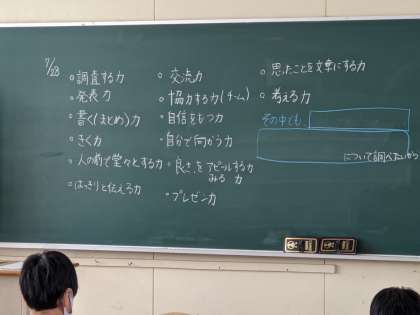 7/23
○調査する力
○発表力
○書く(まとめ)力
○きく力
○人の前で堂々とする力
○はっきりと伝える力
○交流力
○協力する力(チーム)
○自信をもつ力
○自分で向かう力
○良さをアピールする力
みる力
・プレゼン力
○思たことを文章にする力
○考える力
その中でも、
について調べたいから